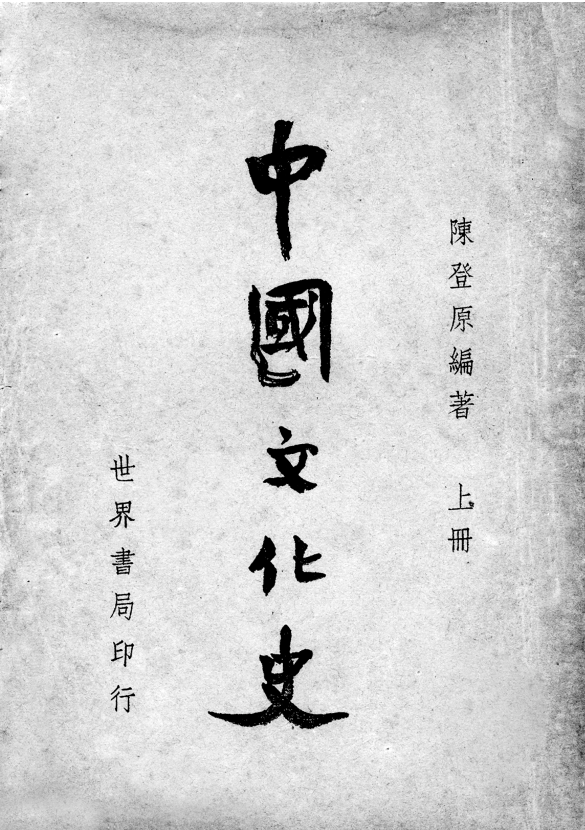 陳登原編著 上冊
中國文化史
世界書局印行